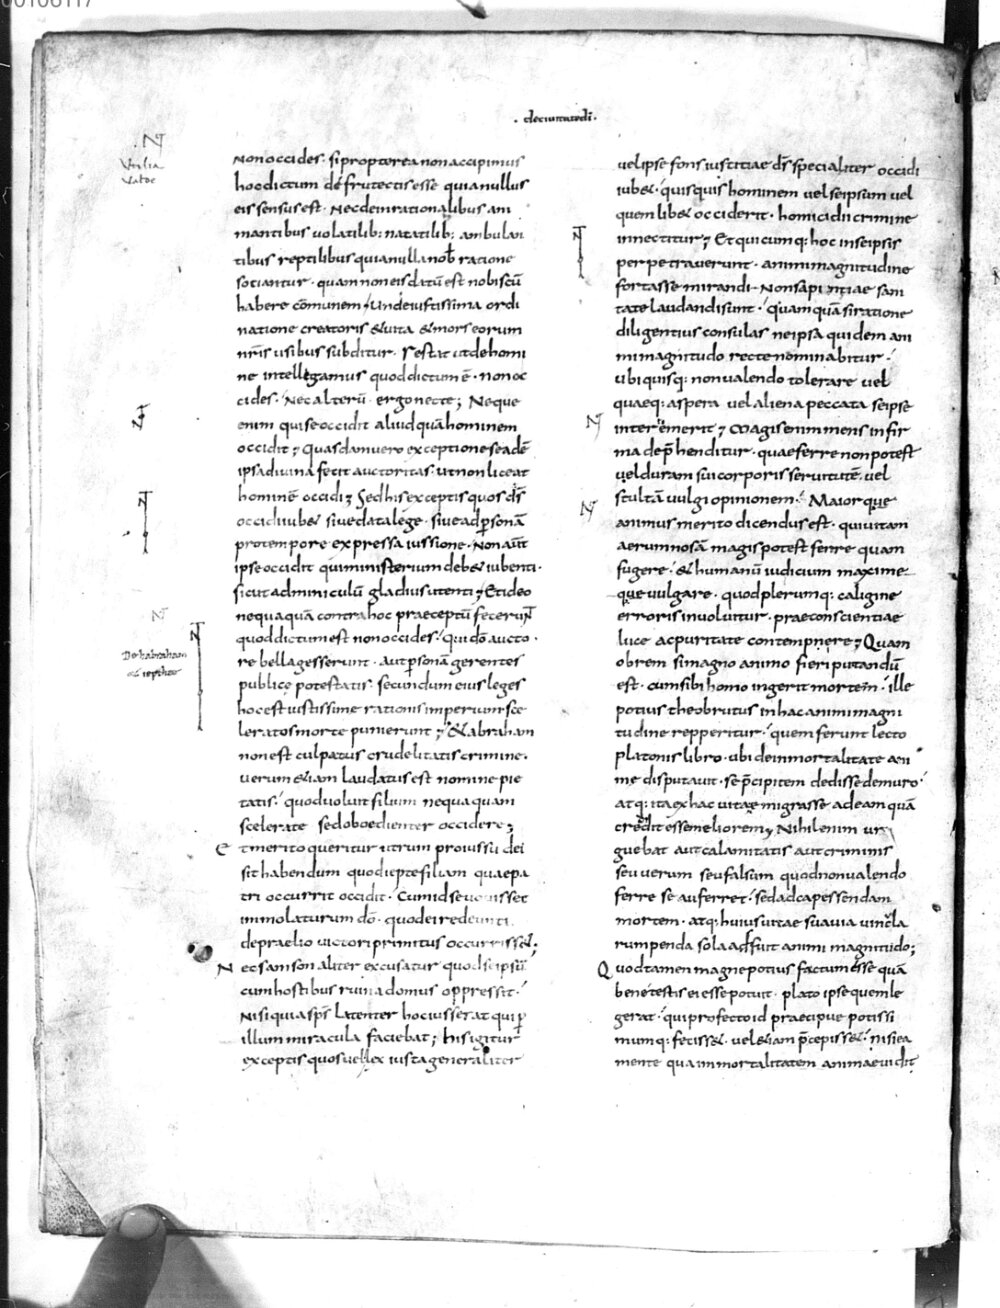 00106117
· deciuitatedi ·
N
Non occides · si propterea non accipimus
hoc dictum de frutectis esse quia nullus
eis sensus est · Nec de inrationalibus ani
mantibus uolatilib; natatilib; ambulan
tibus reptilibus quia nulla nob ratione
sociantur · quam non eis datū est nobiscū
habere cōmunem; Unde iustissima ordi
natione creatoris & uita & mors eorum
nr̄is usibus subditur · Restat ut de homi
ne intellegamus quod dictum ē · non oc
cides · Nec alterū · ergo nec te; Neque
enim qui se occidit aliud quā hominem
occidit; Quasdam uero exceptiones eadē
ipsa diuina fecit auctoritas · ut non liceat
hominē occidi; Sed his exceptis quos d̄s
occidi iub& siue data lege · siue ad ꝑsonā
pro tempore expressa iussione · Non aūt
ipse occidit qui ministerium deb& iubenti ·
sicut adminiculū gladius utenti; Et ideo
nequaquā contra hoc praeceptū fecerun̄t
quod dictum est non occides · qui dō aucto ·
re bella gesserunt · aut ꝑsonā gerentes
publicę potestatis · secundum eius leges
hoc est iustissime rationis imperium sce
leratos morte punierunt; & abraham
non est culpatus crudelitatis crimine ·
uerum &iam laudatus est nomine pie
tatis · quod uoluit filium nequaquam
scelerate sed oboedienter occidere;
Et merito queritur utrum pro iussu dei
sit habendum quod iepte filiam quae pa
tri occurrit occidit · Cum id se uouisset
immolaturum dō · quod ei redeunti
de praelio uictori primitus occurriss&;
Nec samson aliter excusatur quod se ipsū
cum hostibus ruina domus oppressit ·
Nisi quia sp̄s latenter hoc iusserat qui ꝑ
illum miracula faciebat; his igitur
exceptis quos uel lex iusta generaliter
De habraham
& iepthae
uel ipse fons iustitiae d̄s specialiter occidi
iub& · quisquis hominem uel se ipsum uel
quemlib& occiderit · homicidii crimine
innectitur; Et quicumq: hoc in se ipsis
perpetrauerunt · animi magnitudine
fortasse mirandi · Non sapientiae sani
tate laudandi sunt · quamquā si ratione
diligentius consulas ne ipsa quidem ani
mi magnitudo recte nominabitur ·
ubi quisq: non ualendo tolerare uel
quaeq: aspera uel aliena peccata se ipse
interemerit; Magis enim mens infir
ma dep̄henditur · quae ferre non potest
uel duram sui corporis seruitutē · uel
stultā uulgi opinionem · Maiorque
animus merito dicendus est · qui uitam
aerumnosā magis potest ferre quam
fugere · & humanū iudicium maxime
que uulgare · quod plerumq: caligine
erroris inuoluitur · prae conscientiae
luce ac puritate contempnere; Quam
obrem si magno animo fieri putandū
est · cum sibi homo ingerit mortem · ille
potius theobrutus in hac animi magni
tudine repperitur · quem ferunt lecto
platonis libro · ubi de inmortalitate ani
me disputauit · se p̄cipitem dedisse de muro ·
atq: ita ex hac uitae migrasse ad eam quā
credit esse meliorem; Nihil enim ur
guebat aut calamitatis aut criminis
seu uerum seu falsum quod non ualendo
ferre se auferret · sed ad capessendam
mortem · atq: huius uitae suauia uincla
rumpenda sola adfuit animi magnitudo;
Quod tamen magne potius factum esse quā
bene testis ei esse potuit · plato ipse quem le
gerat · qui profecto id praecipue potissi
mumq: feciss& · uel &iam p̄cepiss& · nisi ea
mente qua inmortalitatem animae uidit